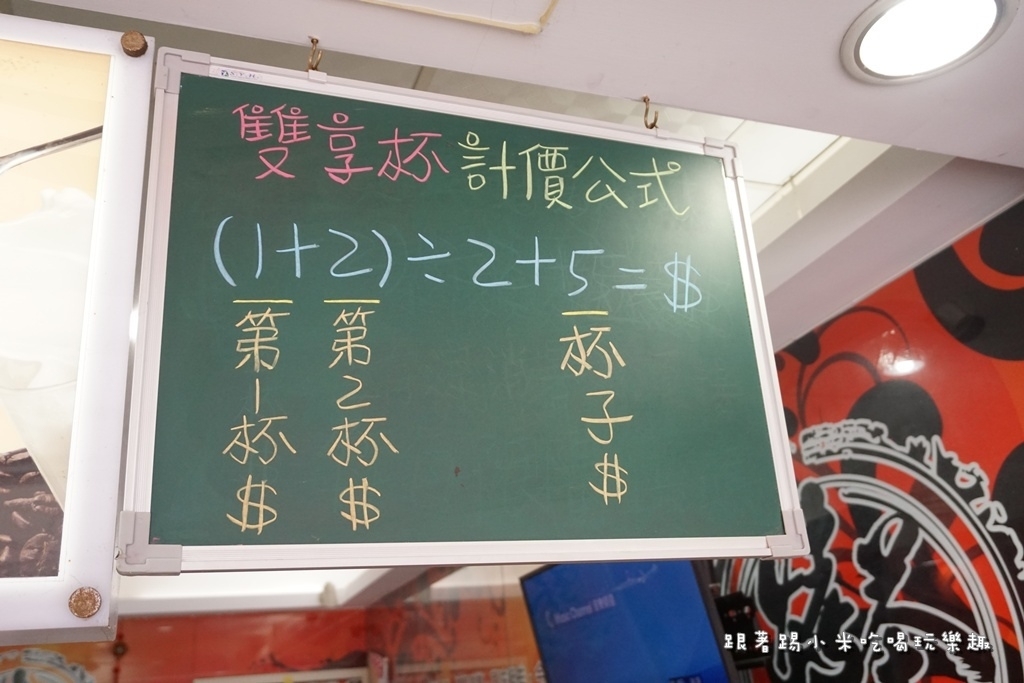 雙享杯計價公式
(1+2)÷2+5=$
第1杯$
第2杯$
杯子$
跟著踢小米吃喝玩樂趣